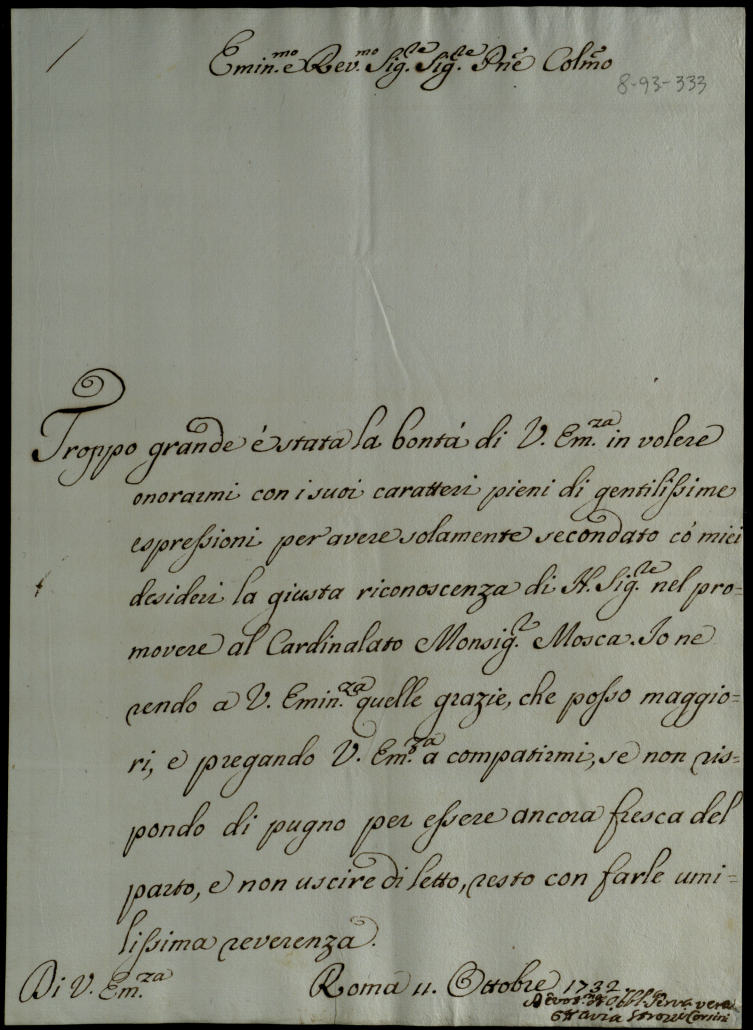 Emin.mo e Rev.mo Sig.re Sig.re Pne Colmo
8-93-333
Troppo grande é stata la bontá di V. Em.za in volere
onorarmi con i suoi caratteri pieni di gentilissime
espressioni per avere solamente secondato co' miei
desideri la giusta riconoscenza di N. Sig.re nel pro=
movere al Cardinalato Monsig.r Mosca. Io ne
rendo a V. Emin.za quelle grazie, che posso maggio=
ri, e pregando V. Em.za a compatirmi, se non ris=
pondo di pugno per essere ancora fresca del
parto, e non uscire di letto, resto con farle umi=
lissima reverenza.
Di V. Em.za Roma 11. Ottobre 1732
Devot.ma Obbl. Serva vera
Ottavia Strozzi Corsini